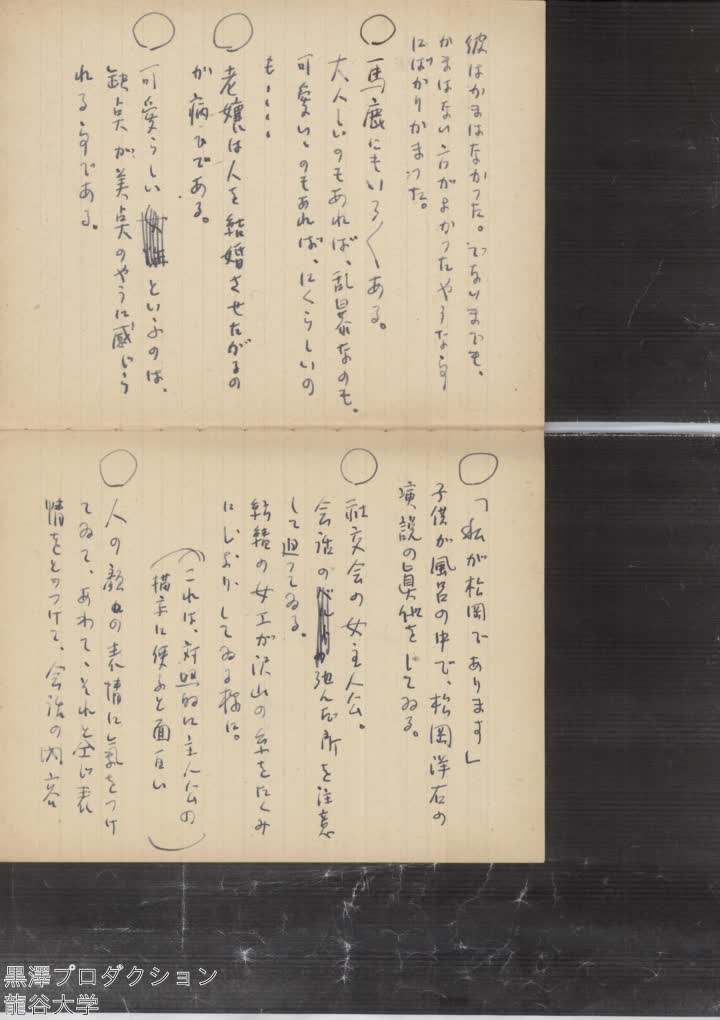 彼はかまはなかつた。でないまでも、
かまはない方がよかつたやうな事
にばかりかまつた。
○ 馬鹿にもいろ〱ある。
大人しいのもあれば、乱暴なのも、
可愛いゝのもあれば、にくらしいの
も、、、、
○ 老嬢は人を結婚させたがるの
が病ひである。
○ 可愛らしいといふのは、
缺点が美点のやうに感じら
れる事である。
○ 「私が松岡であります」
子供が風呂の中で、松岡洋右の
演説の真似をしてゐる。
○ 社交会の女主人公。
会話の弛んだ所を注意
して廻つてゐる。
紡績の女工が沢山の糸をたくみ
にしてゐる様に。
(これは、対照的に主人公の
描写に使ふと面白い)
○ 人の顔の表情に氣をつけ
てゐて、あわて、それと同じ表
情をとりつけて、会話の内容
黒澤プロダクション
龍谷大学